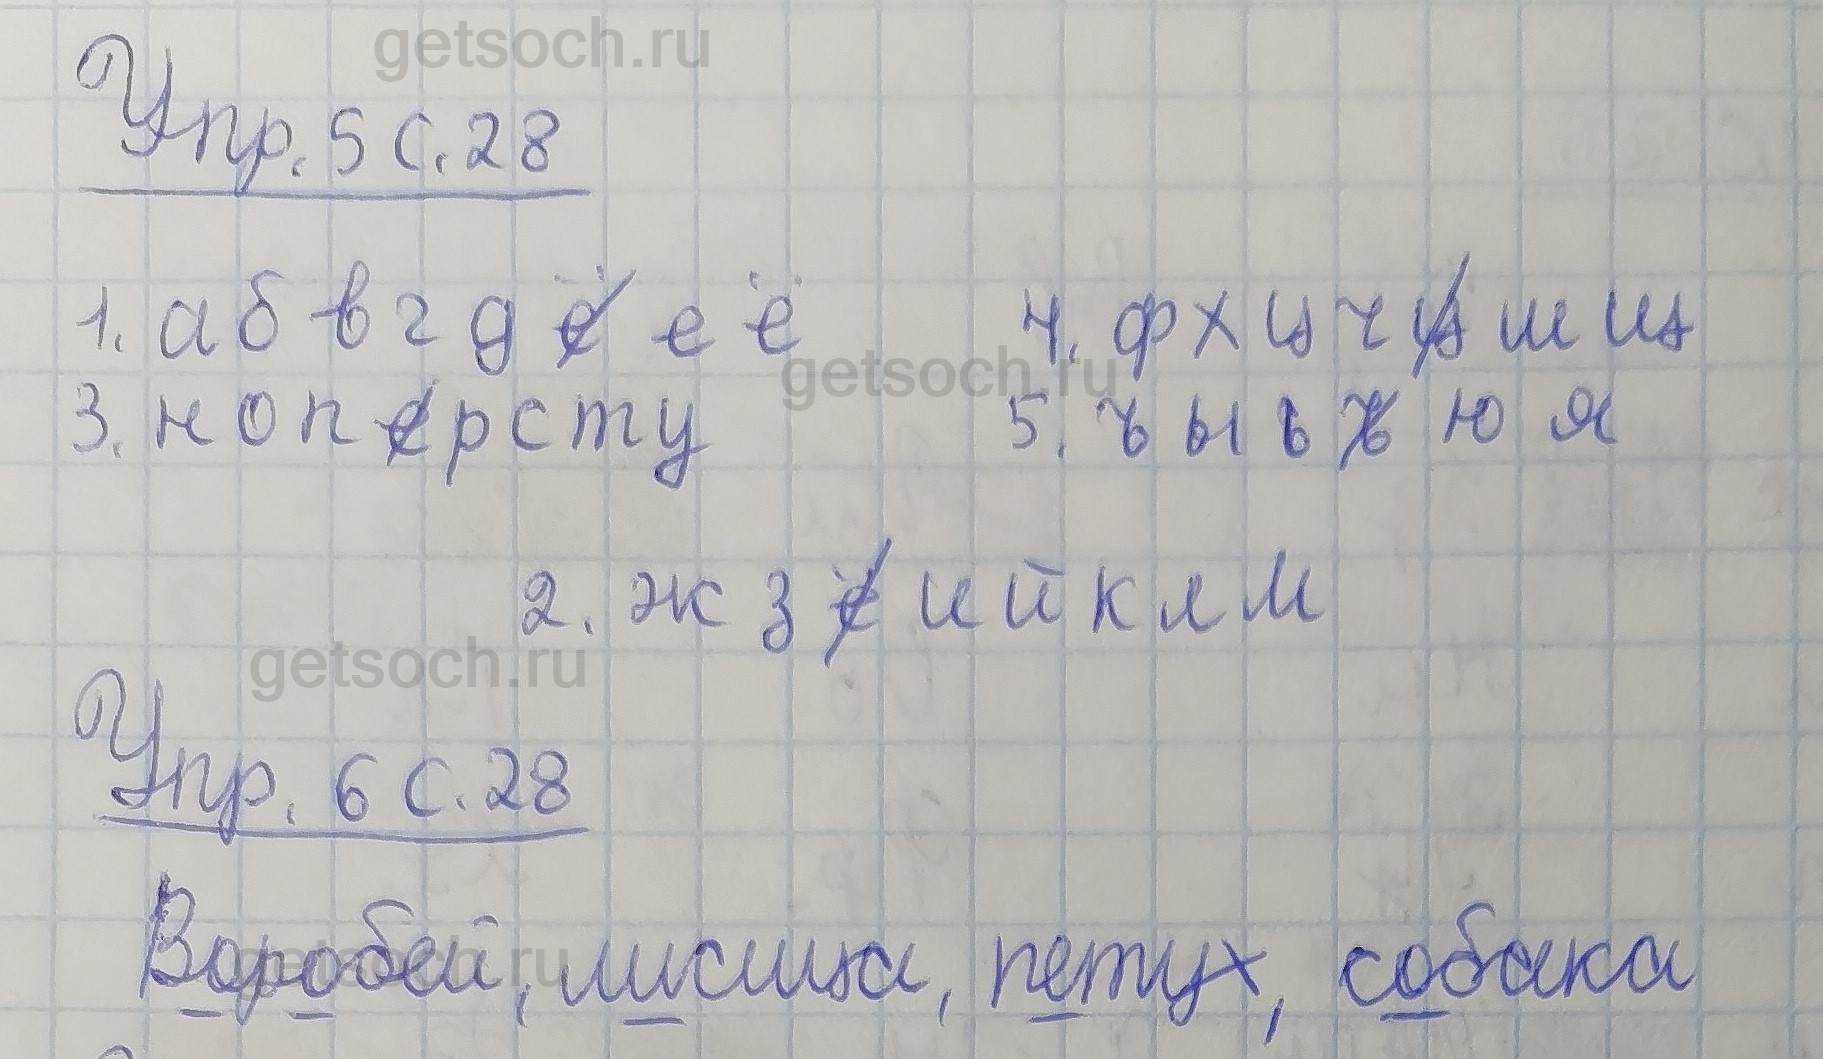 getsoch.ru
Упр. 5 с. 28
1. а б в г д ё е ё
4. ф х ц ч ц ш щ
getsoch.ru
3. н о п е р с т у
5. ъ ы ь ъ ю я
2. ж з ё и й к л м
getsoch.ru
Упр. 6 с. 28
Воробей, лисица, петух, собака
getsoch.ru